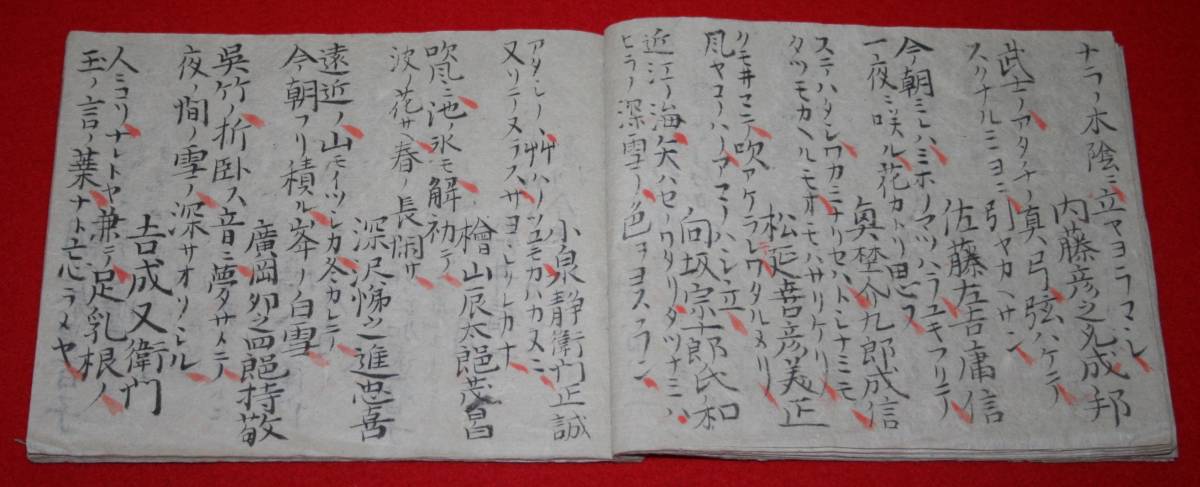 ナラノ木陰ニ立マヨラマシ
内藤彦之允成邦
武士ノアタチノ真弓弦ハケテ
スクナルミヨニ引ヤカヘサン
佐藤左吉庸信
今朝ミレハミホノマツハラユキフリテ
一夜ニ咲ル花カトソ思フ
九郎成信
スニハタレワカミナリセハトシナミモ
タツモカヘルモオモハサリケリ
松延善彦義正
クモ井マテ吹アケラレワタルメリ
風ヤコハノアマノハシ立
向坂宗士郎氏和
近江ノ海矢ハセノワタリタツナミハ
ヒラノ深雪ノ色ヲヨスラン
小泉静衛門正誠
アタシノノ艸ハノツユモカハカヌニ
又ソテヌラスサヨシクレカナ
檜山辰太郎茂昌
吹風ニ池ノ氷モ解初テ
波ノ花サヘ春ノ長閑サ
深尺悌之進忠喜
遠近ノ山モイツシカ冬カレテ
今朝フリ積ル峯ノ白雪
廣岡卯之四郎持敬
呉竹ノ折臥ス音ニ夢サメテ
夜ノ間ノ雪ノ深サオソシル
吉成又衛門
人ミコソナシトヤ兼テ足乳根ノ
玉ノ言ノ葉ナト忘ラメヤ